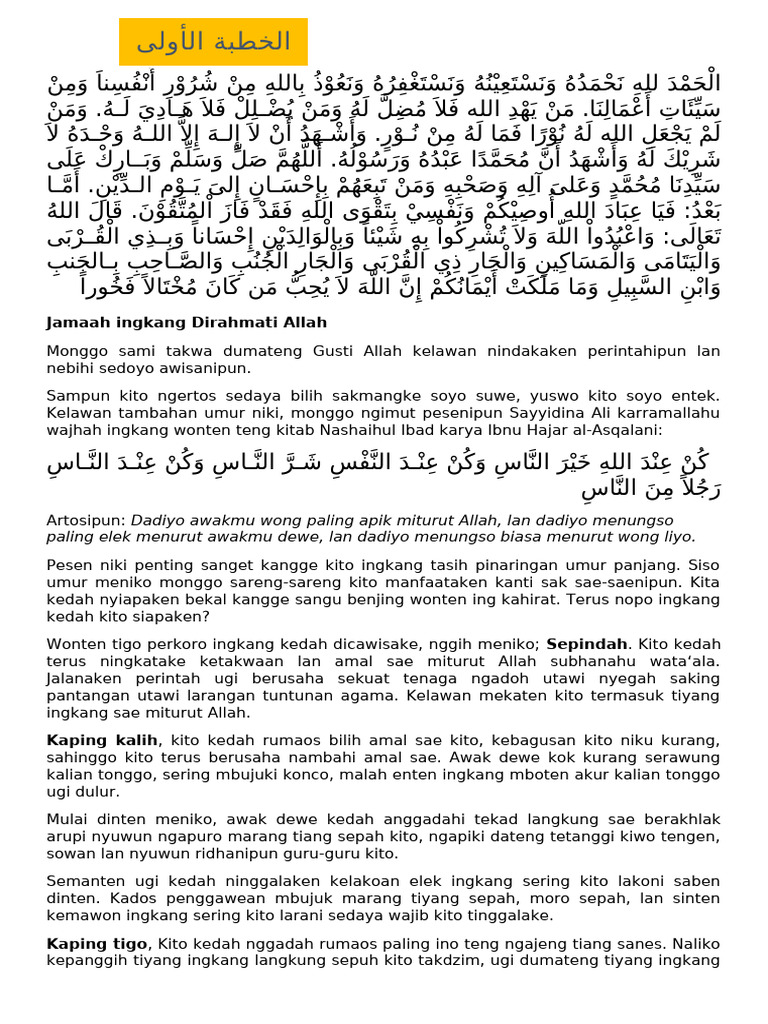 الخطبة الأولى
الْحَمْدَ للهِ نَحْمَدُهُ وَنَسْتَعِيْنُهُ وَنَسْتَغْفِرُهُ وَنَعُوْذُ بِاللهِ مِنْ شُرُوْرِ أَنْفُسِناَ وَمِنْ
سَيِّئَاتِ أَعْمَالِنَا. مَنْ يَهْدِ الله فَلاَ مُضِلَّ لَهُ وَمَنْ يُضْـلِلْ فَلاَ هَـادِيَ لَـهُ. وَمَنْ
لَمْ يَجْعَلِ الله لَهُ نُوْرًا فَمَا لَهُ مِنْ نُـوْرٍ. وَأَشْـهَدُ أَنْ لاَ إِلـهَ إِلاَّ اللـهُ وَحْـدَهُ لاَ
شَرِيْكَ لَهُ وَأَشْهَدُ أَنَّ مُحَمَّدًا عَبْدُهُ وَرَسُوْلُهُ. أَللَّهُمَّ صَلِّ وَسَلِّمْ وَبَـارِكْ عَلَى
سَيِّدِنَا مُحُمَّدٍ وَعَلىَ آلِهِ وَصَحْبِهِ وَمَنْ تَبِعَهُمْ بِإِحْسَـانٍ إِلىَ يَـوْمِ الـدِّيْنِ. أَمَّـا
بَعْدُ: فَيَا عِبَادَ اللهِ أُوصِيْكُمْ وَنَفْسِيْ بِتَقْوَى اللهِ فَقَدْ فَازَ الْمُتَّقُوْنَ. قَالَ اللهُ
تَعَالَى: وَاعْبُدُواْ اللّهَ وَلاَ تُشْرِكُواْ بِهِ شَيْئاً وَبِالْوَالِدَيْنِ إِحْسَاناً وَبِـذِي الْقُـرْبَى
وَالْيَتَامَى وَالْمَسَاكِينِ وَالْجَارِ ذِي الْقُرْبَى وَالْجَارِ الْجُنُبِ وَالصَّـاحِبِ بِـالجَنبِ
وَابْنِ السَّبِيلِ وَمَا مَلَكَتْ أَيْمَانُكُمْ إِنَّ اللّهَ لاَ يُحِبُّ مَن كَانَ مُخْتَالاً فَخُوراً
Jamaah ingkang Dirahmati Allah
Monggo sami takwa dumateng Gusti Allah kelawan nindakaken perintahipun lan
nebihi sedoyo awisanipun.
Sampun kito ngertos sedaya bilih sakmangke soyo suwe, yuswo kito soyo entek.
Kelawan tambahan umur niki, monggo ngimut pesenipun Sayyidina Ali karramallahu
wajhah ingkang wonten teng kitab Nashaihul Ibad karya Ibnu Hajar al-Asqalani:
كُنْ عِنْدَ اللهِ خَيْرَ النَّاسِ وَكُنْ عِنْـدَ النَّفْسِ شَـرَّ النَّـاسِ وَكُنْ عِنْـدَ النَّـاسِ
رَجُلاً مِنَ النَّاسِ
Artosipun: Dadiyo awakmu wong paling apik miturut Allah, lan dadiyo menungso
paling elek menurut awakmu dewe, lan dadiyo menungso biasa menurut wong liyo.
Pesen niki penting sanget kangge kito ingkang tasih pinaringan umur panjang. Siso
umur meniko monggo sareng-sareng kito manfaataken kanti sak sae-saenipun. Kita
kedah nyiapaken bekal kangge sangu benjing wonten ing kahirat. Terus nopo ingkang
kedah kito siapaken?
Wonten tigo perkoro ingkang kedah dicawisake, nggih meniko; Sepindah. Kito kedah
terus ningkatake ketakwaan lan amal sae miturut Allah subhanahu wata‘ala.
Jalanaken perintah ugi berusaha sekuat tenaga ngadoh utawi nyegah saking
pantangan utawi larangan tuntunan agama. Kelawan mekaten kito termasuk tiyang
ingkang sae miturut Allah.
Kaping kalih, kito kedah rumaos bilih amal sae kito, kebagusan kito niku kurang,
sahinggo kito terus berusaha nambahi amal sae. Awak dewe kok kurang serawung
kalian tonggo, sering mbujuki konco, malah enten ingkang mboten akur kalian tonggo
ugi dulur.
Mulai dinten meniko, awak dewe kedah anggadahi tekad langkung sae berakhlak
arupi nyuwun ngapuro marang tiang sepah kito, ngapiki dateng tetanggi kiwo tengen,
sowan lan nyuwun ridhanipun guru-guru kito.
Semanten ugi kedah ninggalaken kelakoan elek ingkang sering kito lakoni saben
dinten. Kados penggawean mbujuk marang tiyang sepah, moro sepah, lan sinten
kemawon ingkang sering kito larani sedaya wajib kito tinggalake.
Kaping tigo, Kito kedah nggadah rumaos paling ino teng ngajeng tiang sanes. Naliko
kepanggih tiyang ingkang langkung sepuh kito takdzim, ugi dumateng tiyang ingkang